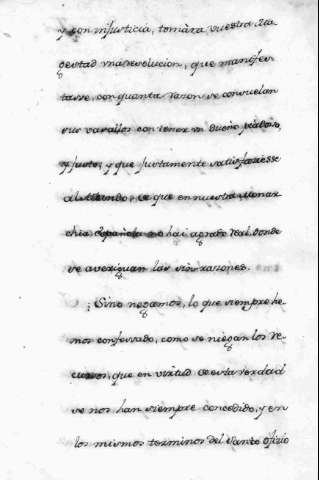 y con injusticia, tomàra vuestra Ma
gestad una resolucion, que manifes
tasse, con quanta razon se consuelan
sus vasallos con tener un Dueño piadoso,
y justo, y que justamente satisfaciesse
al Mundo, de que en nuestra Monar
chia Española no hai agravio Real donde
se averiguan las sin razones.
¿Sino negamos, lo que siempre he
mos confessado, como se niegan los Re
cursos, que en virtud de esta verdad
se nos han siempre concedido, y en
los mismos terminos del Santo Oficio